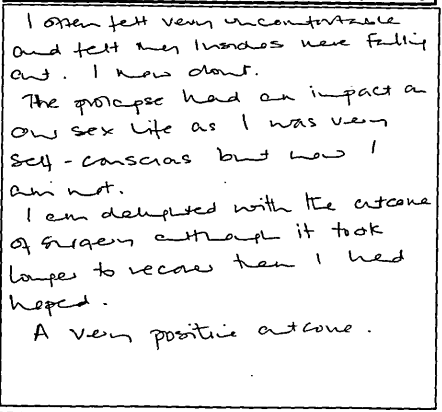 I often felt very uncomfortable
and felt my insides were falling
out. I now dont.
The prolapse had an impact on
our sex life as I was very
self-conscious but now I
am not.
I am delighted with the outcome
of surgery although it took
longer to recover than I had
hoped.
A very positive outcome.